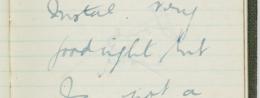 Instal. very
good night, but
I not a